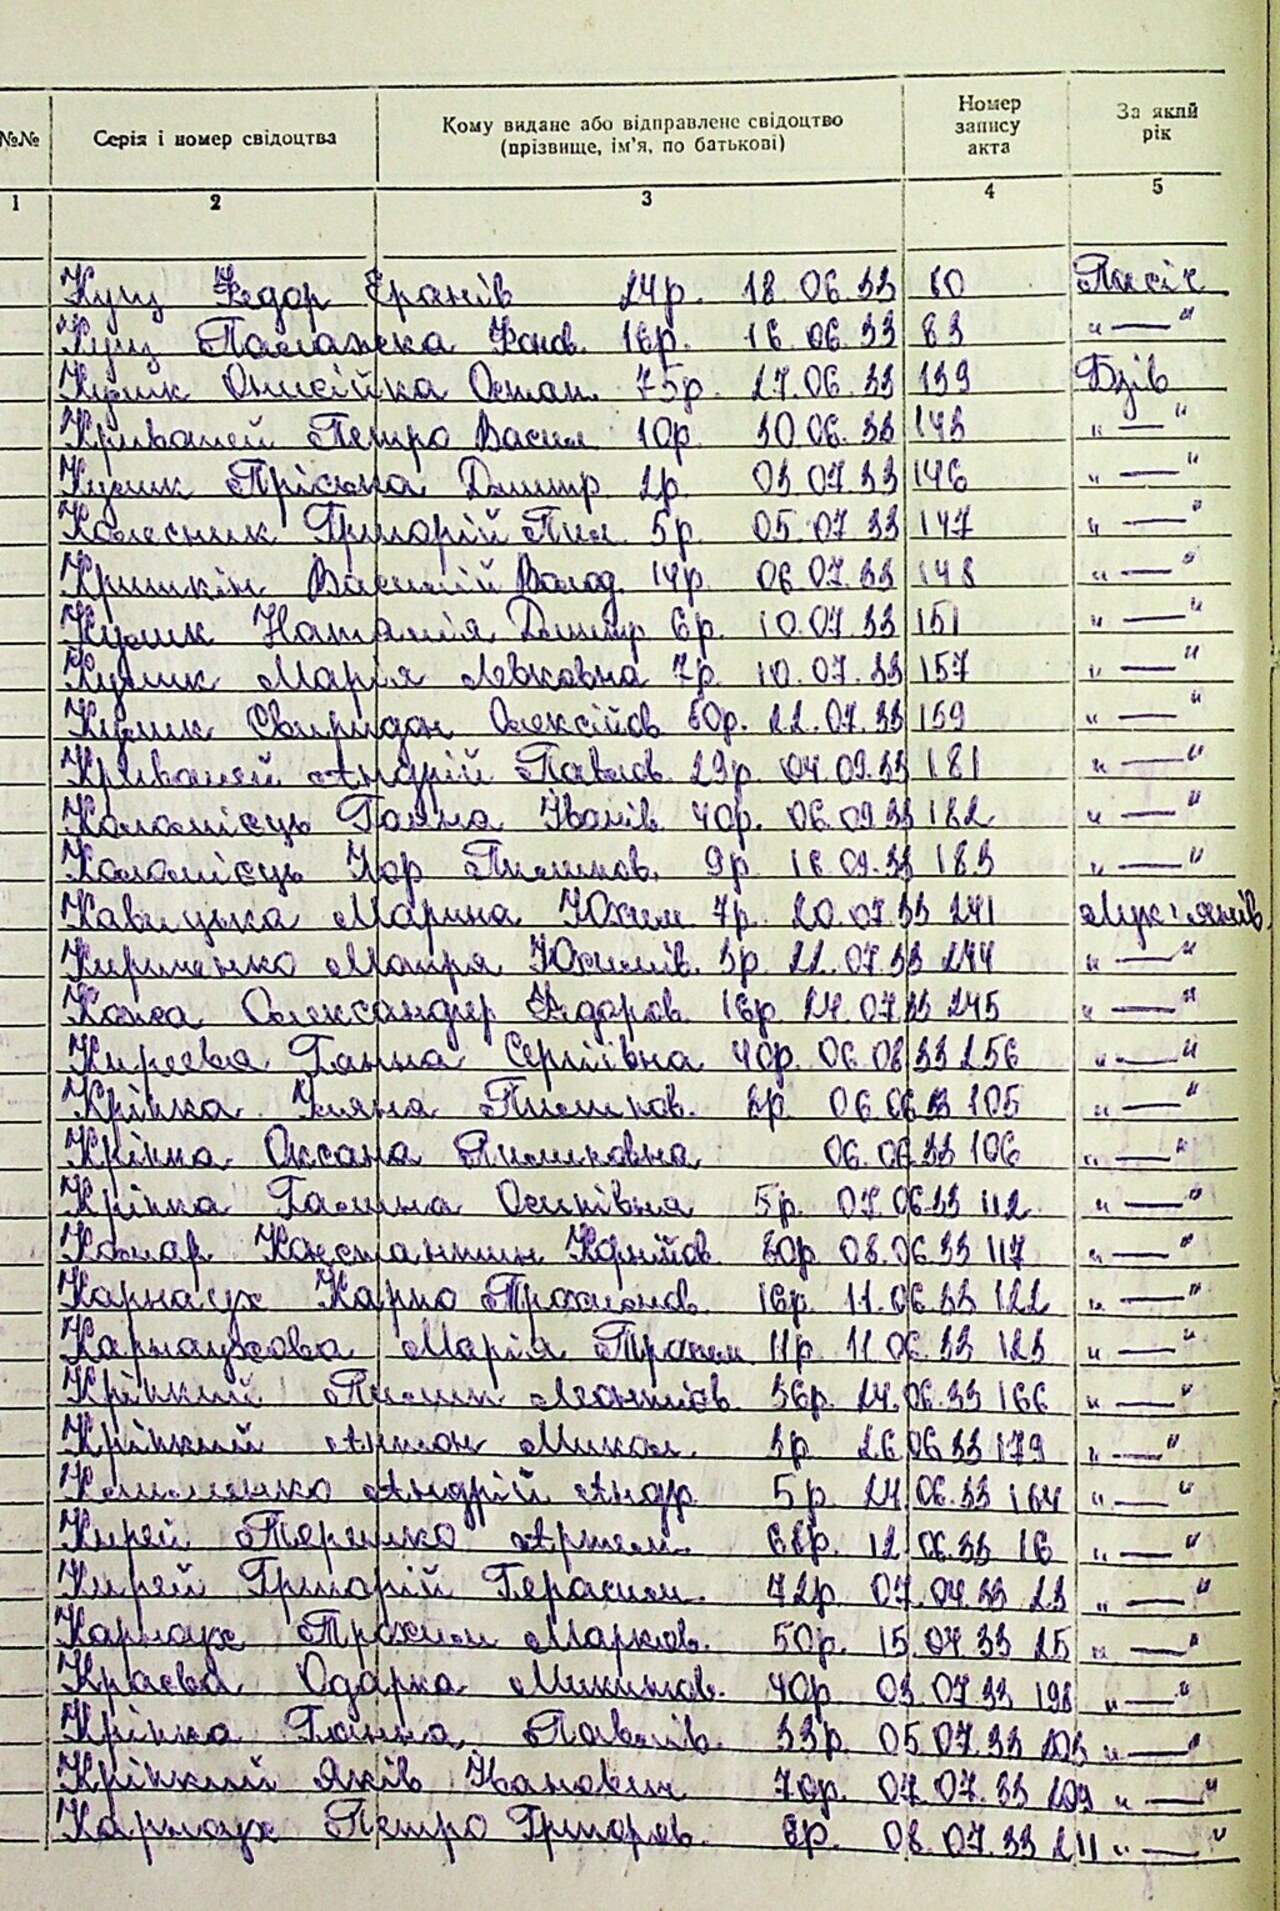 №№ Серія і номер свідоцтва Кому видане або відправлене свідоцтво (прізвище, ім'я, по батькові) Номер запису акта За який рік
1 2 3 4 5
Кущ Федор Єранів 24р. 18.06.33 80 Пасіч
Кущ Палажка Хонов. 16р. 16.06.33 83 "—"
Кулик Онисійка Остап. 75р. 27.06.33 139 Бзів
Кривошей Петро Васил 10р. 30.06.33 143 "—"
Кулик Пріська Дмитр. 2р. 03.07.33 146 "—"
Колесник Григорій Пил. 5р. 05.07.33 147 "—"
Кришкін Василій Волод. 14р. 06.07.33 148 "—"
Кулик Наталія Дмитр 6р. 10.07.33 151 "—"
Кулик Марія Левковна 7р. 10.07.33 157 "—"
Кулик Свиридон Олексійов 60р. 22.07.33 159 "—"
Кривошей Андрій Павлов. 29р. 04.09.33 181 "—"
Коломієць Ганна Іванів. 40р. 06.09.33 182 "—"
Коломієць Пилипов. 9р. 16.09.33 183 "—"
Кавицька Марина Юхим. 7р. 20.07.33 241 Лук'янів
Кириченко Мотря Юхимів. 3р. 22.07.33 244 "—"
Кожа Олександер Федоров. 16р. 24.07.33 245 "—"
Киреева Ганна Сергіївна 40р. 06.08.33 256 "—"
Кріпка Уляна Пилипов. 2р. 06.06.33 105 "—"
Кріпка Оксана Пилиповна 06.06.33 106 "—"
Кріпка Галина Осипівна 5р. 07.06.33 112 "—"
Комар Костантин Корнійов. 60р. 08.06.33 117 "—"
Карнаух Карпо Трохимов. 16р. 11.06.33 122 "—"
Карнаухова Марія Трохим. 11р. 11.06.33 123 "—"
Кріпкий Пилип Леонтіїв. 36р. 24.06.33 166 "—"
Кріпкий Антон Микол. 3р. 26.06.33 179 "—"
Климченко Андрій Андр. 5р. 24.06.33 164 "—"
Кирей Терешко Артем. 68р. 12.06.33 16 "—"
Кирей Григорій Герасим. 72р. 07.04.33 23 "—"
Карнаух Трохим Марков. 50р. 15.04.33 25 "—"
Краєва Одарка Микитов. 40р. 03.07.33 198 "—"
Кріпка Ганна Павлів. 33р. 05.07.33 203 "—"
Кріпкий Яків Іванович 70р. 07.07.33 209 "—"
Карнаух Петро Григоров. 8р. 08.07.33 211 "—"